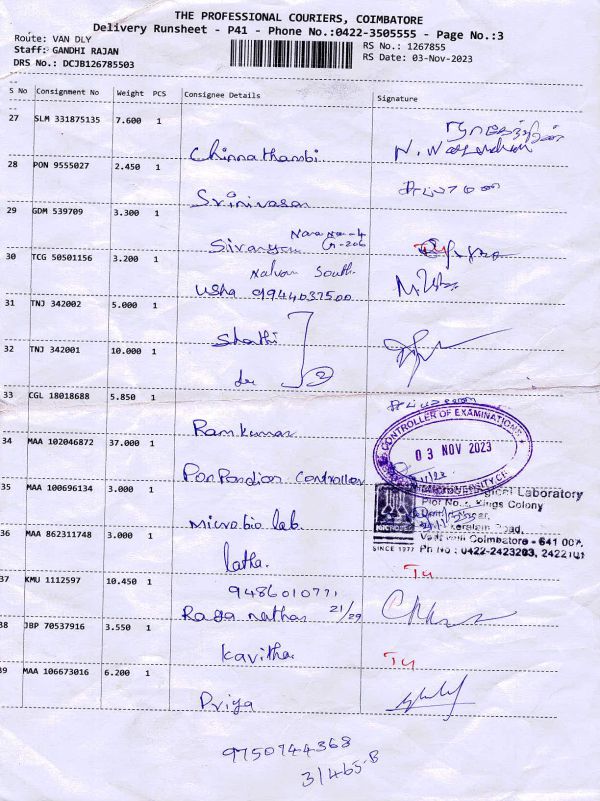 THE PROFESSIONAL COURIERS, COIMBATORE
Delivery Runsheet - P41 - Phone No.:0422-3505555 - Page No.:3
Route: VAN DLY
Staff: GANDHI RAJAN
DRS No.: DCJB126785503
RS No.: 1267855
RS Date: 03-Nov-2023
S No Consignment No Weight PCS Consignee Details Signature
27 SLM 331875135 7.600 1
Chinnathambi
28 PON 9555027 2.450 1
Srinivasan
29 GDM 539709 3.300 1
G-206
30 TCG 50501156 3.200 1
South
Usha 9944037500
31 TNJ 342002 5.000 1
Shathi
32 TNJ 342001 10.000 1
2
33 CGL 18018688 5.850 1
Ramkumar
CONTROLLER OF EXAMINATIONS
03 NOV 2023
34 MAA 102046872 37.000 1
Pon Pandian Controller
35 MAA 100696134 3.000 1
Microbio lab.
Laboratory
Kings Colony
Road,
Coimbatore - 641 007.
SINCE 1977 Ph No : 0422-2423203,
36 MAA 862311748 3.000 1
latha.
37 KMU 1112597 10.450 1
9486010771
Raganathan 21/29
38 JBP 70537916 3.550 1
Kavitha
39 MAA 106673016 6.200 1
Priya
9750744368
3/465-B